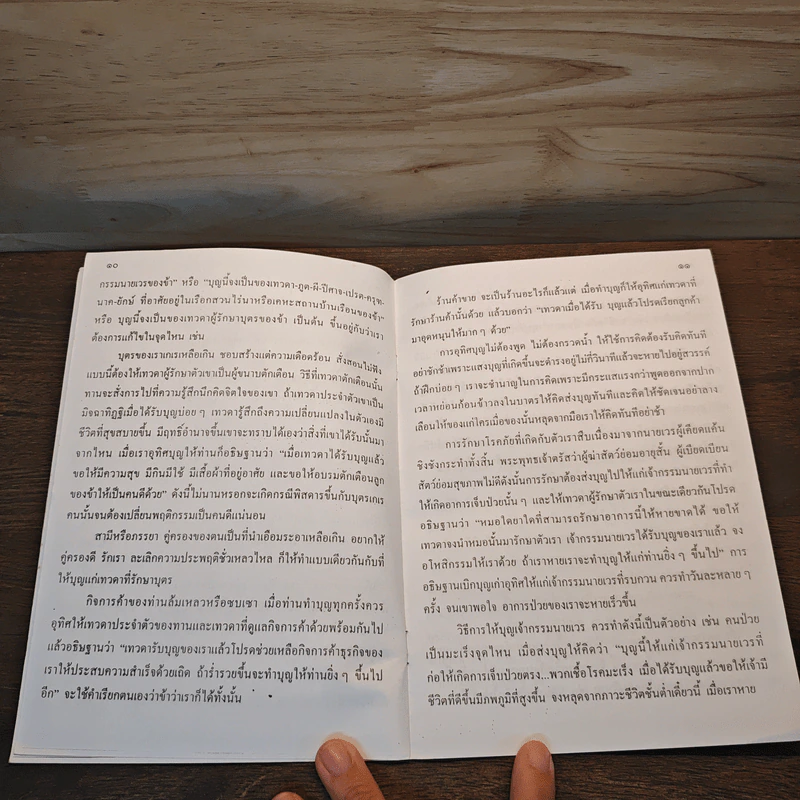 ๑๐
กรรมนายเวรของข้า" หรือ "บุญนี้จงเป็นของเทวดา-ภูต-ผี-ปีศาจ-เปรต-ครุฑ-
นาค-ยักษ์ ที่อาศัยอยู่ในเรือกสวนไร่นาหรือเคหะสถานบ้านเรือนของข้า"
หรือ บุญนี้จงเป็นของเทวดาผู้รักษาบุตรของข้า เป็นต้น ขึ้นอยู่กับว่าเรา
ต้องการแก้ไขในจุดไหน เช่น
บุตรของเราเกเรเหลือเกิน ชอบสร้างแต่ความเดือดร้อน สั่งสอนไม่ฟัง
แบบนี้ต้องให้เทวดาผู้รักษาตัวเขาเป็นผู้ขนาบตักเตือน วิธีที่เทวดาตักเตือนนั้น
ทานจะสั่งการไปที่ความรู้สึกนึกคิดจิตใจของเขา ถ้าเทวดาประจำตัวเขาเป็น
มิจฉาทิฏฐิเมื่อได้รับบุญบ่อย ๆ เทวดารู้สึกถึงความเปลี่ยนแปลงในตัวเองมี
ชีวิตที่สุขสบายขึ้น มีฤทธิ์อำนาจขึ้นเขาจะทราบได้เองว่าสิ่งที่เขาได้รับนั้นมา
จากไหน เมื่อเราอุทิศบุญให้ท่านก็อธิษฐานว่า "เมื่อเทวดาได้รับบุญแล้ว
ขอให้มีความสุข มีกินมีใช้ มีเสื้อผ้าที่อยู่อาศัย และขอให้อบรมตักเตือนลูก
ของข้าให้เป็นคนดีด้วย" ดังนี้ไม่นานหรอกจะเกิดกรณีพิสดารขึ้นกับบุตรเกเร
คนนั้นจนต้องเปลี่ยนพฤติกรรมเป็นคนดีแน่นอน
สามีหรือภรรยา คู่ครองของตนเป็นที่น่าเอือมระอาเหลือเกิน อยากให้
คู่ครองดี รักเรา ละเลิกความประพฤติชั่วเหลวไหล ก็ให้ทำแบบเดียวกันกับที่
ให้บุญแก่เทวดาที่รักษาบุตร
กิจการค้าของท่านล้มเหลวหรือซบเซา เมื่อท่านทำบุญทุกครั้งควร
อุทิศให้เทวดาประจำตัวของท่านและเทวดาที่ดูแลกิจการค้าด้วยพร้อมกันไป
แล้วอธิษฐานว่า "เทวดารับบุญของเราแล้วโปรดช่วยเหลือกิจการค้าธุรกิจของ
เราให้ประสบความสำเร็จด้วยเถิด ถ้าร่ำรวยขึ้นจะทำบุญให้ท่านยิ่ง ๆ ขึ้นไป
อีก" จะใช้คำเรียกตนเองว่าข้าว่าเราก็ได้ทั้งนั้น
๑๑
ร้านค้าขาย จะเป็นร้านอะไรก็แล้วแต่ เมื่อทำบุญก็ให้อุทิศแก่เทวดาที่
รักษาร้านค้านั้นด้วย แล้วบอกว่า "เทวดาเมื่อได้รับ บุญแล้วโปรดเรียกลูกค้า
มาอุดหนุนให้มาก ๆ ด้วย"
การอุทิศบุญไม่ต้องพูด ไม่ต้องกรวดน้ำ ให้ใช้การคิดต้องรีบคิดทันที
อย่าชักช้าเพราะแสงบุญที่เกิดขึ้นจะดำรงอยู่ไม่กี่วินาทีแล้วจะหายไปอยู่สวรรค์
ถ้าฝึกบ่อย ๆ เราจะชำนาญในการคิดเพราะมีกระแสแรงกว่าพูดออกจากปาก
เวลาหย่อนก้อนข้าวลงในบาตรให้คิดส่งบุญทันทีและคิดให้ชัดเจนอย่าลาง
เลือนให้ของแก่ใครเมื่อของนั้นหลุดจากมือเราให้คิดทันทีอย่าช้า
การรักษาโรคภัยที่เกิดกับตัวเราสืบเนื่องมาจากนายเวรผู้เคียดแค้น
ชิงชังกระทำทั้งสิ้น พระพุทธเจ้าตรัสว่าผู้ฆ่าสัตว์ย่อมอายุสั้น ผู้เบียดเบียน
สัตว์ย่อมสุขภาพไม่ดีดังนั้นการรักษาต้องส่งบุญไปให้แก่เจ้ากรรมนายเวรที่ทำ
ให้เกิดอาการเจ็บป่วยนั้น ๆ และให้เทวดาผู้รักษาตัวเราในขณะเดียวกันโปรด
อธิษฐานว่า "หมอใดยาใดที่สามารถรักษาอาการนี้ให้หายขาดได้ ขอให้
เทวดาจงนำหมอนั้นมารักษาตัวเรา เจ้ากรรมนายเวรได้รับบุญของเราแล้ว จง
อโหสิกรรมให้เราด้วย ถ้าเราหายเราจะทำบุญให้แก่ท่านยิ่ง ๆ ขึ้นไป" การ
อธิษฐานเบิกบุญเก่าอุทิศให้แก่เจ้ากรรมนายเวรที่รบกวน ควรทำวันละหลาย ๆ
ครั้ง จนเขาพอใจ อาการป่วยของเราจะหายเร็วขึ้น
วิธีการให้บุญเจ้ากรรมนายเวร ควรทำดังนี้เป็นตัวอย่าง เช่น คนป่วย
เป็นมะเร็งจุดไหน เมื่อส่งบุญให้คิดว่า "บุญนี้ให้แก่เจ้ากรรมนายเวรที่
ก่อให้เกิดการเจ็บป่วยตรง...พวกเชื้อโรคมะเร็ง เมื่อได้รับบุญแล้วขอให้เจ้ามี
ชีวิตที่ดีขึ้นมีภพภูมิที่สูงขึ้น จงหลุดจากภาวะชีวิตชั้นต่ำเดี๋ยวนี้ เมื่อเราหาย